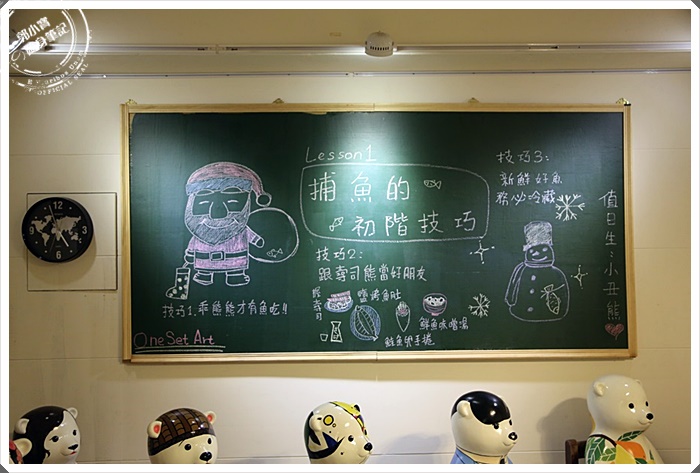 郭小寶
の變身筆記
OFFICIAL SEAL
Lesson 1
捕魚的
初階技巧
技巧1:乖熊熊才有魚吃!!
技巧2:
跟壽司熊當好朋友
握壽司
鹽烤魚肚
鮮魚味噌湯
鮭魚卵手捲
技巧3:
新鮮好魚
務必冷藏
值日生:小丑熊
One Set Art